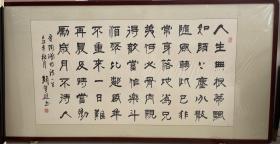 人生無根蒂飄
如陌上塵分散
隨風轉此已非
常身落地為兄
弟何必骨肉親
得歡當作樂斗
酒聚比鄰盛年
不重來一日難
再晨及時當勉
勵歲月不待人